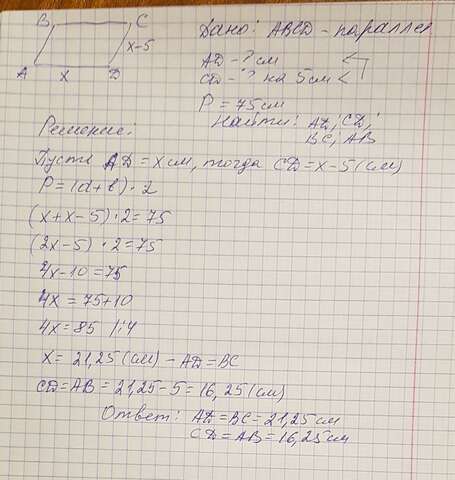 B C
x-5
A x D
Дано: ABCD - параллел
AD - ? см
CD - ? на 5см <
P = 75см
Найти: AD; CD;
BC; AB
Решение:
Пусть AD = x см, тогда CD = x-5(см)
P = (a+b) · 2
(x+x-5) · 2 = 75
(2x-5) · 2 = 75
4x-10 = 75
4x = 75+10
4x = 85 |:4
x = 21,25 (см) - AD = BC
CD = AB = 21,25 - 5 = 16,25 (см)
Ответ: AD = BC = 21,25 см
CD = AB = 16,25 см